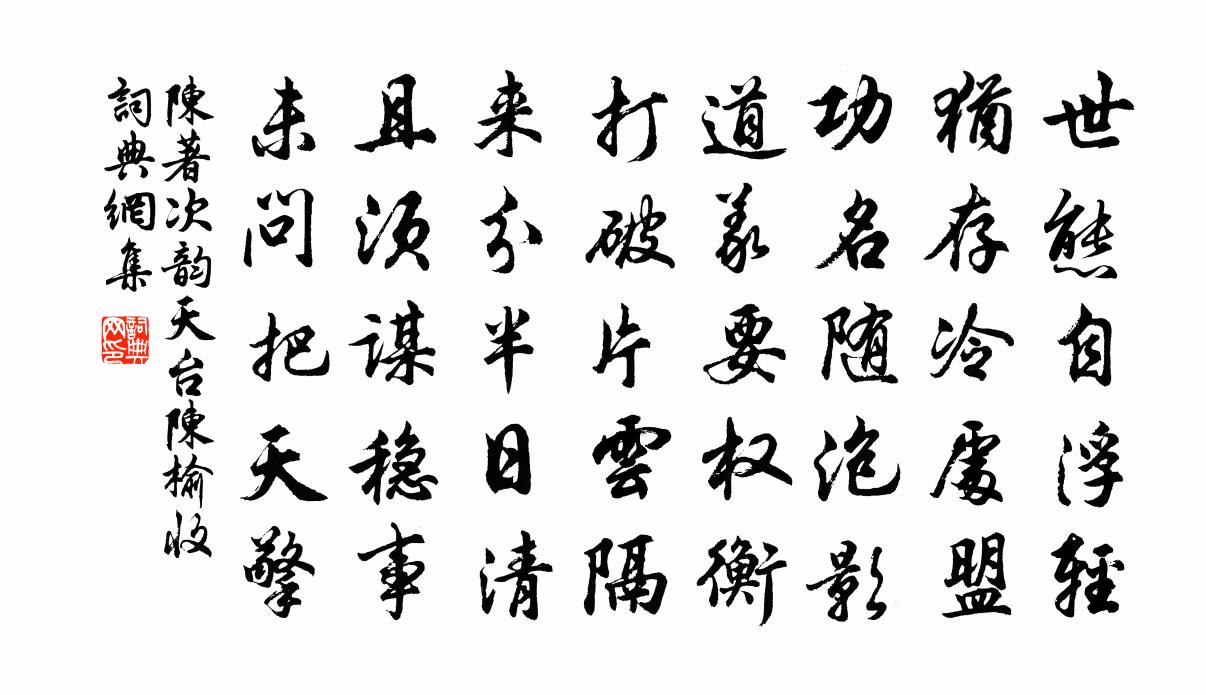 世態自浮輕
猶存冷處盟
功名随泡影
道義要权衡
打破片雲隔
来分半日清
且須謀稳事
未問把天擎
陳著次韵天台陳榆收
詞典網集
詞典網印